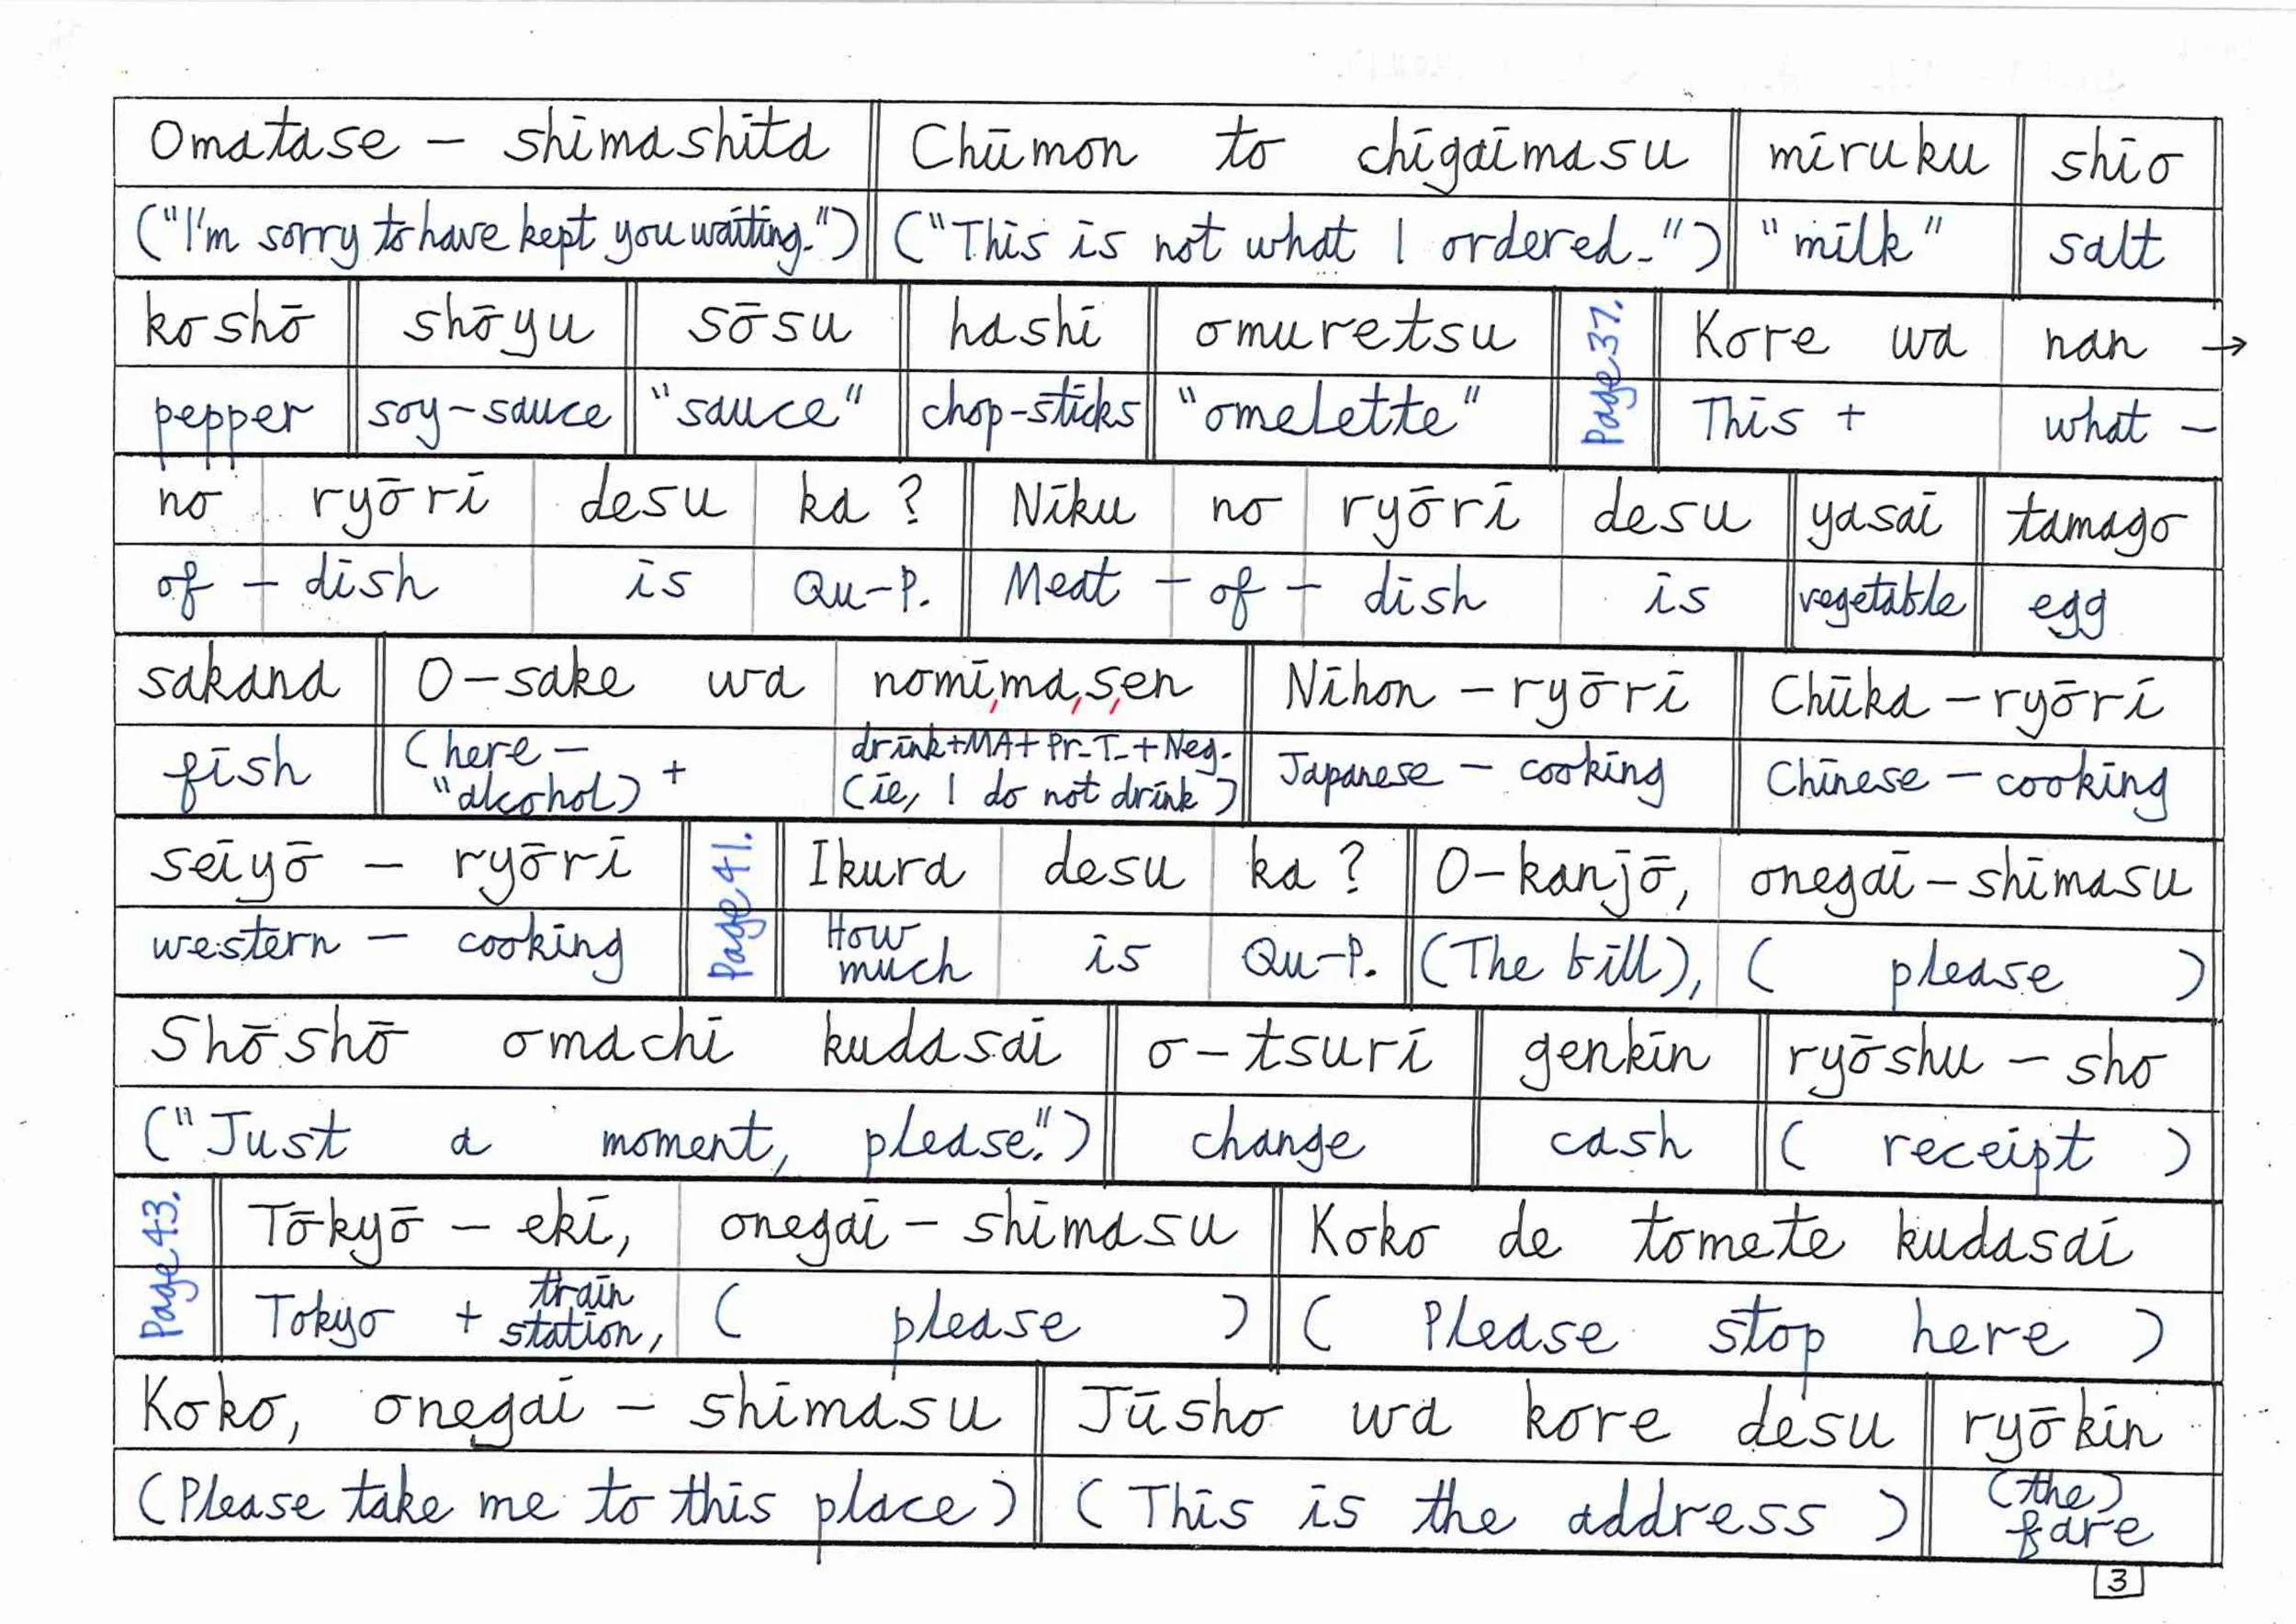 Omatase – shimashita Chūmon to chigaimasu miruku shio
("I'm sorry to have kept you waiting.") ("This is not what I ordered.") "milk" salt
koshō shōyu sōsu hashi omuretsu Page 37. Kore wa nan →
pepper soy-sauce "sauce" chop-sticks "omelette" This + what –
no ryōri desu ka? Niku no ryōri desu yasai tamago
of – dish is Qu-P. Meat – of – dish is vegetable egg
sakana O-sake wa nomi,ma,s,en Nihon – ryōri Chūka – ryōri
fish (here – "alcohol) + drink+MA+ Pr-T-+Neg. (ie, I do not drink) Japanese – cooking Chinese – cooking
seiyō – ryōri Page 41. Ikura desu ka? O-kanjō, onegai – shimasu
western – cooking How much is Qu-P. (The bill), ( please )
Shōshō omachi kudasai o-tsuri genkin ryōshu – sho
("Just a moment, please.") change cash ( receipt )
Page 43. Tōkyō – eki, onegai – shimasu Koko de tomete kudasai
Tokyo + train station, ( please ) ( Please stop here )
Koko, onegai – shimasu Jūsho wa kore desu ryōkin
(Please take me to this place) ( This is the address ) (the) fare
3